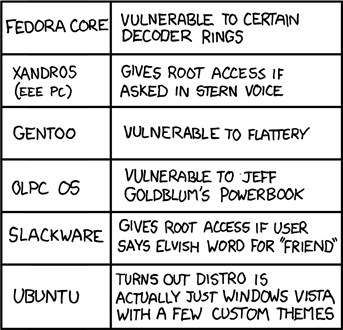 FEDORA CORE
VULNERABLE TO CERTAIN
DECODER RINGS
XANDROS
(EEE PC)
GIVES ROOT ACCESS IF
ASKED IN STERN VOICE
GENTOO
VULNERABLE TO FLATTERY
OLPC OS
VULNERABLE TO JEFF
GOLDBLUM'S POWERBOOK
SLACKWARE
GIVES ROOT ACCESS IF USER
SAYS ELVISH WORD FOR "FRIEND"
UBUNTU
TURNS OUT DISTRO IS
ACTUALLY JUST WINDOWS VISTA
WITH A FEW CUSTOM THEMES